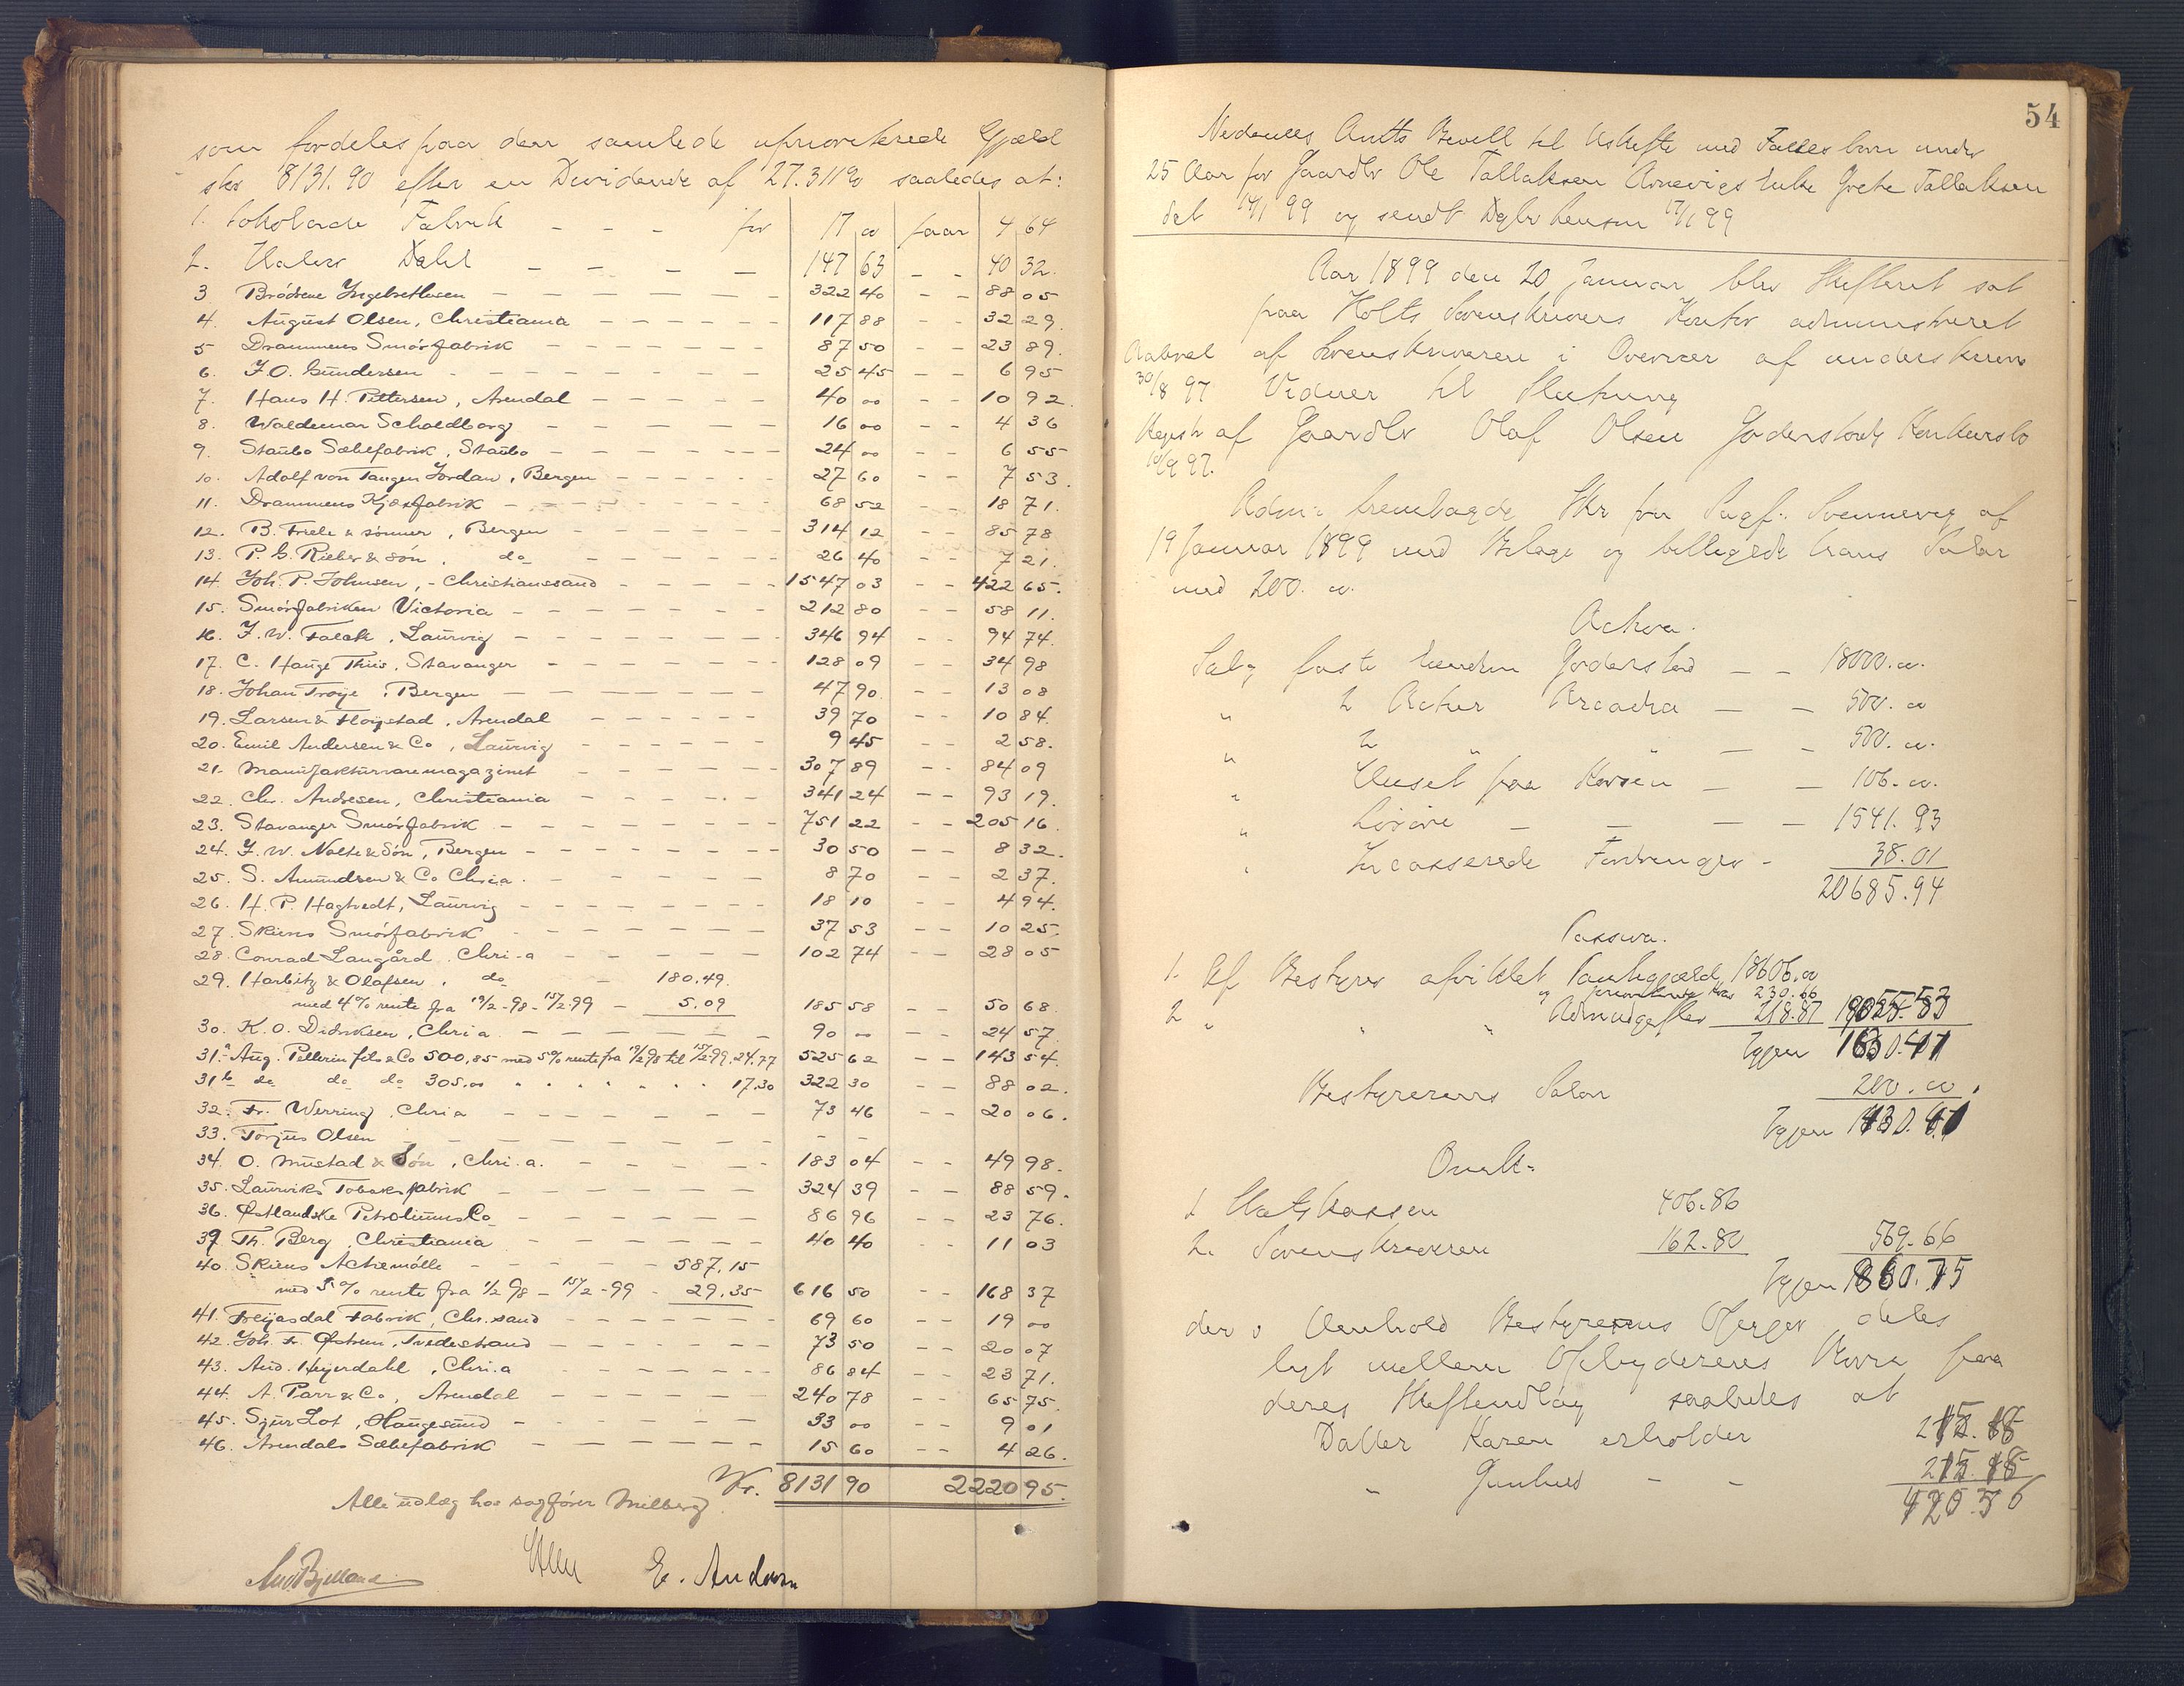 som fordeles paa den samlede uprioriterede Gjæld
stor 8131.90 efter en Dividende af 27.311% saaledes at:
1. Fabrik - - - for 17 00 faar 4 64
2. Dahl - - - - 147 63 - - 40 32.
3 Brødrene Ingebrethsen - - - 322 40 - - 88 05
4. August Olsen, Christiania - - - 117 88 - - 32 29.
5 Drammens Smørfabrik - - - 87 50 - - 23 89.
6. J. O. Gundersen - - - 25 45 - - 6 95
7. Hans H. Pettersen, Arendal - - - 40 00 - - 10 92.
8. Waldemar Scholdborg - - - 16 00 - - 4 36
9. Staubo Sæbefabrik, Staubo - - - 24 00 - - 6 55
10. Adolf von Tangen Jordan, Bergen - - - 27 60 - - 7 53.
11. Drammens Kjæxfabrik - - - 68 52 - - 18 71.
12. B. Friele & sønner, Bergen - - - 314 12 - - 85 78
13. P. G. Rieber & søn, do - - - 26 40 - - 7 21.
14. Joh. P. Johnsen, - Christianssand - - - 1547 03 - - 422 65.
15. Smørfabriken Victoria - - - 212 80 - - 58 11.
16. J. W. Falck, Laurvig - - - 346 94 - - 94 74.
17. C. Hauge Thiis, Stavanger - - - 128 09 - - 34 98
18. Johan Troye, Bergen - - - 47 90. - - 13 08
19. Larsen & Fløystad, Arendal - - - 39 70 - - 10 84.
20. Emil Andersen & Co, Laurvig - - - 9 45 - - 2 58.
21. Manufakturvaremagazinet - - - 307 89 - - 84 09
22. Chr. Andresen, Christiania - - - 341 24 - - 93 19.
23. Stavanger Smørfabrik - - - 751 22 - - 205 16.
24. J. W. Nolte & Søn, Bergen - - - 30 50 - - 8 32.
25. S. Amundsen & Co Chria. - - - 8 70 - - 2 37.
26. H. P. Hagtvedt, Laurvig - - - 18 10 - - 4 94.
27. Skiens Smørfabrik - - - 37 53 - - 10 25.
28. Conrad Langård, Chri.a - - - 102 74 - - 28 05
29. Harbitz & Olafsen, do - 180.49.
med 4% rente fra 19/2-98 - 15/2-99 - 5.09 185 58 - - 50 68.
30. K. O. Didriksen, Chria - - - 90 00 - - 24 57.
31.a Aug. Pellerin fils & Co 500,85 med 5% rente fra 19/2 98 til 15/2-99. 24.77 525 62 - - 143 54.
31b do do do 305.00 " " " " " " 17.30 322 30 - - 88 02.
32. Fr. Werring, Chria - - - 73 46 - - 20 06.
33. Torjus Olsen - - -
34. O. Mustad & Søn, Chri.a. - - - 183 04 - - 49 98.
35. Laurviks Tobaksfabrik - - - 324 39 - - 88 59.
36. Østlandske Petroliums Co - - - 86 96 - - 23 76.
39. Th. Berg, Christiania - - - 40 40 - - 11 03
40. Skiens Actiemølle - - - 587.15
med 5% rente fra 1/2 98 - 15/2-99 - 29.35 616 50 - - 168 37
41. Fabrik, Chr.sand - - - 69 60 - - 19 00
42. Joh. Fr. Østrem, Tvedestrand - - - 73 50 - - 20 07
43. And. Heyerdahl, Chri.a - - - 86 84 - - 23 71.
44. A. Parr & Co, Arendal - - - 240 78 - - 65 75.
45. Sjur Lot, Haugesund - - - 33 00 - - 9 01
46. Arendals Sæbefabrik - - - 15 60 - - 4 26.
Kr. 8131 90 2220 95.
Alle udlæg hos sagfører Milberg.
E. Andersen
54
Nedenæs Amts Bevill til Uskifte med Fællesbørn under
25 Aar for Gaardbr Ole Tallaksen Arnevigs Enke Grete Tallaksen
dat 14/1 99 og sendt 17/1 99
Aar 1899 den 20 Januar blev Skifteret sat
paa Holts Sorenskrivers Kontor administreret
af Sorenskriveren i Overvær af underskrevne
30/8 97 Vidner til Slutning
af Gaardbr Olaf Olsen Konkursbo
10/9 97.
Adm: fremlagde Skr fra Sagf: Svennevig af
19 Januar 1899 med Bilage og billigede hans Salær
med 200. 00.
Activa.
Salg faste Eiendom - - 18000.00.
" 2 Actier Arcadia - - 500. 00
" 2 " " - - 500. 00.
" Huset paa - - 106. 00.
" Løsøre - - - - 1541. 93
" Incasserede Fordringer - 38.01
20685.94
Passiva.
1. Af Bestyrer afviklet Pantegjæld 18606.00
og 230.66
2 " " " 218.87
Igjen
Bestyrerens Salær 200. 00.
Igjen
1 Statskassen 406.86
2. Sorenskriveren 162.80 569.66
Igjen
der i Henhold Bestyrerens Opgjør deles
ligt mellem Opbyderens Børn paa
deres saaledes at
Datter Karen erholder
" Gunhild - -